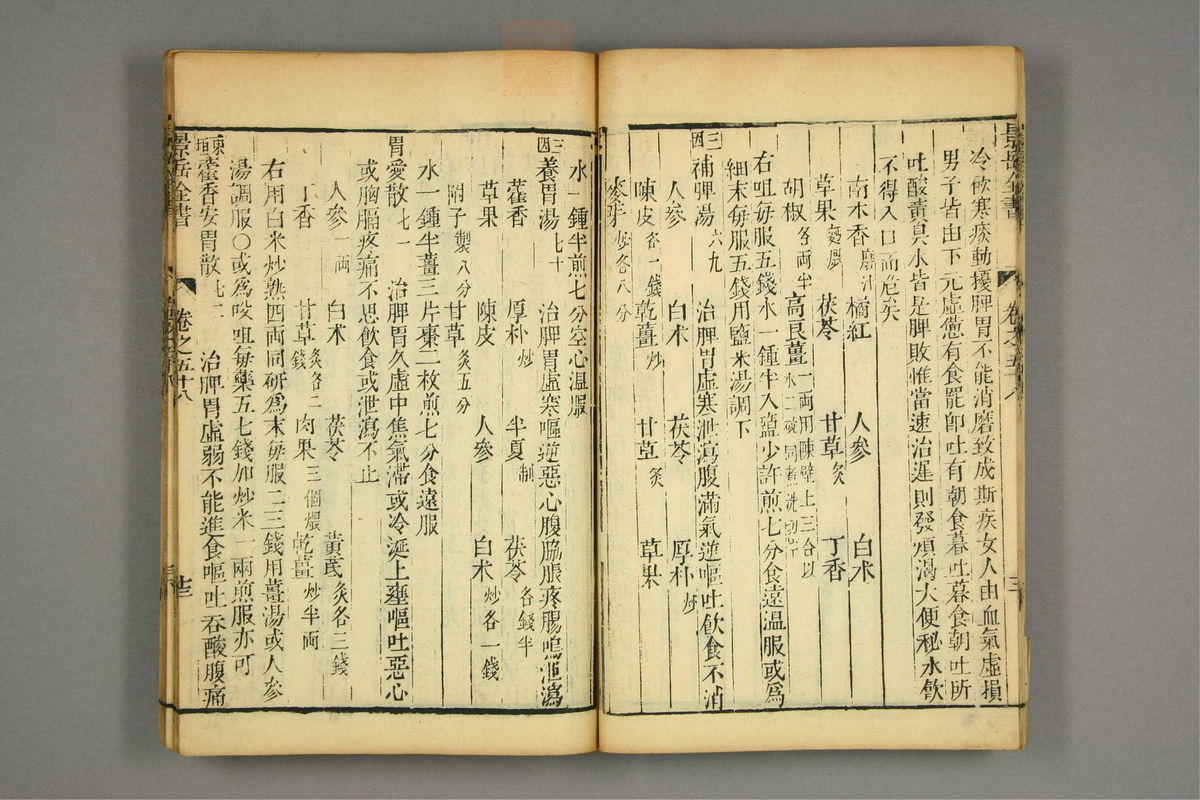 景岳全書
卷之五十八
冷飲寒痰動擾脾胃不能消磨致成斯疾女人由血氣虛損
男子皆由下元虛憊有食罷即吐有朝食暮吐暮食朝吐所
吐酸黃臭水皆是脾敗惟當速治遲則發煩渴大便秘水飲
不得入口而危矣
南木香磨汁 橘紅 人參 白朮
草果麵煨 茯苓 甘草炙 丁香
胡椒各兩半 高良薑一兩用陳壁上三合以水二碗同煮洗切片
右㕮每服五錢水一鍾半入鹽少許煎七分食遠溫服或為
細末每服五錢用鹽米湯調下
三因補脾湯六九 治脾胃虛寒泄瀉腹滿氣逆嘔吐飲食不消
人參 白朮 茯苓 厚朴炒
陳皮各一錢 乾薑炒 甘草炙 草果
麥芽炒各八分
水一鍾半煎七分空心溫服
三因養胃湯七十 治脾胃虛寒嘔逆惡心腹脇脹疼腸鳴泄瀉
藿香 厚朴炒 半夏制 茯苓各錢半
草果 陳皮 人參 白朮炒各一錢
附子製八分 甘草炙五分
水一鍾半薑三片棗二枚煎七分食遠服
胃愛散七一 治脾胃久虛中焦氣滯或冷涎上壅嘔吐惡心
或胸膈疼痛不思飲食或泄瀉不止
人參一兩 白朮 茯苓 黃芪炙各三錢
丁香 甘草炙各二錢 肉果三個煨 乾薑炒半兩
右用白米炒熟四兩同研為末每服二三錢用薑湯或人參
湯調服○或為㕮咀每藥五七錢加炒米一兩煎服亦可
東垣藿香安胃散七二 治脾胃虛弱不能進食嘔吐吞酸腹痛
景岳全書
卷之五十八